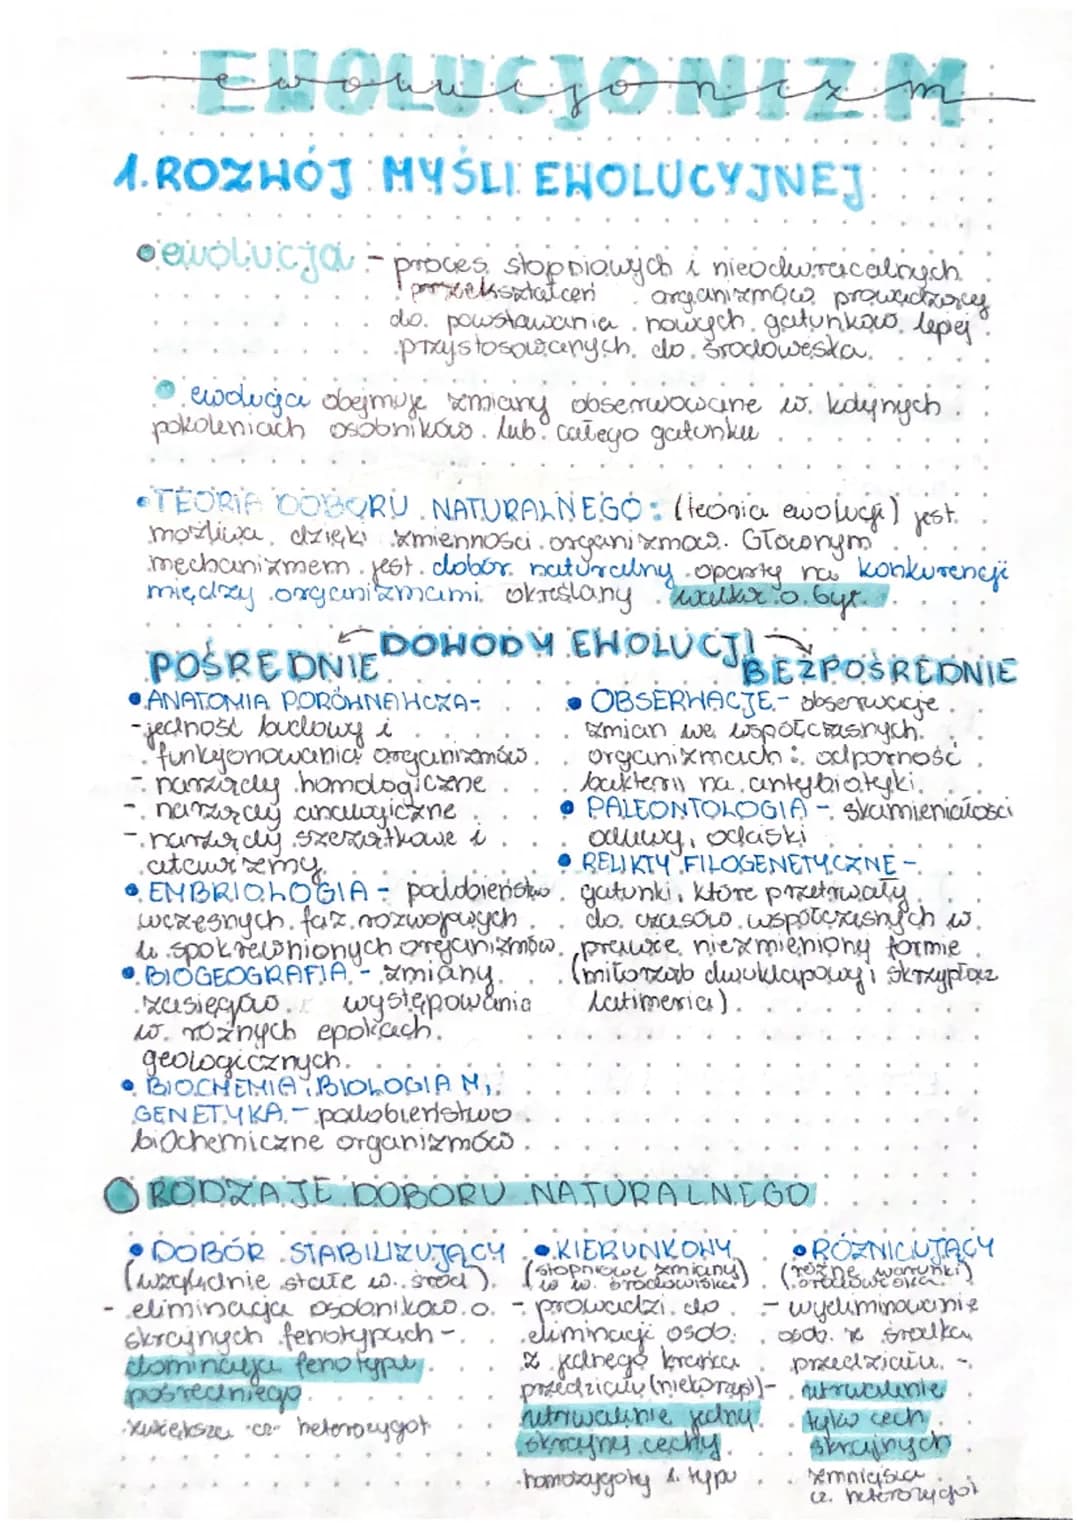 EWOLUCJONIZM
ewolucjonizm
1. ROZWÓJ MYŚLI EWOLUCYJNEJ
• ewolucja - proces stopniowych i nieodwracalnych
przekształceń organizmów prowadzący
do powstawania nowych gatunków, lepiej
przystosowanych do środowiska.
• ewolucja obejmuje zmiany obserwowane w kolejnych
pokoleniach osobników lub całego gatunku
• TEORIA DOBORU NATURALNEGO: (teoria ewolucji) jest
możliwa dzięki zmienności organizmów. Głównym
mechanizmem jest dobór naturalny oparty na konkurencji
między organizmami określany walką o byt.
DOWODY EWOLUCJI
POŚREDNIE
• ANATOMIA PORÓWNAWCZA-
- jedność budowy i
funkcjonowania organizmów
- narządy homologiczne
- narządy analogiczne
- narządy szczątkowe i
atawizmy
• EMBRIOLOGIA - podobieństwo
wczesnych faz rozwojowych
u spokrewnionych organizmów
• BIOGEOGRAFIA - zmiany
zasięgów występowania
w różnych epokach
geologicznych.
• BIOCHEMIA, BIOLOGIA M,
GENETYKA - podobieństwo
biOchemiczne organizmów
BEZPOŚREDNIE
• OBSERWACJE - obserwacje
zmian we współczesnych
organizmach: odporność
bakterii na antybiotyki
• PALEONTOLOGIA - skamieniałości
odlewy, odciski
• RELIKTY FILOGENETYCZNE -
gatunki, które przetrwały
do czasów współczesnych w
prawie niezmieniony formie
(miłorząb dwuklapowy, skrzypłocz
latimeria).
RODZAJE DOBORU NATURALNEGO
• DOBÓR STABILIZUJĄCY
(względnie stałe w. środ).
- eliminacja osobników o
skrajnych fenotypach -
dominacja fenotypu
pośredniego
zwiększa cz. heterozygot
• KIERUNKOWY
(stopniowe zmiany
w w. środowiska)
- prowadzi do
eliminacji osob.
z jednego krańca
przedziału (niekorzys)-
utrwalenie jedny
skrajnej cechy
homozygoty 1. typu
• RÓŻNICUJĄCY
(różne warunki
środowiska)
- wyeliminowanie
osob. ze środka
przedziału -
utrwalenie
tylko cech
skrajnych
zmniejsza
cz. heterozygot